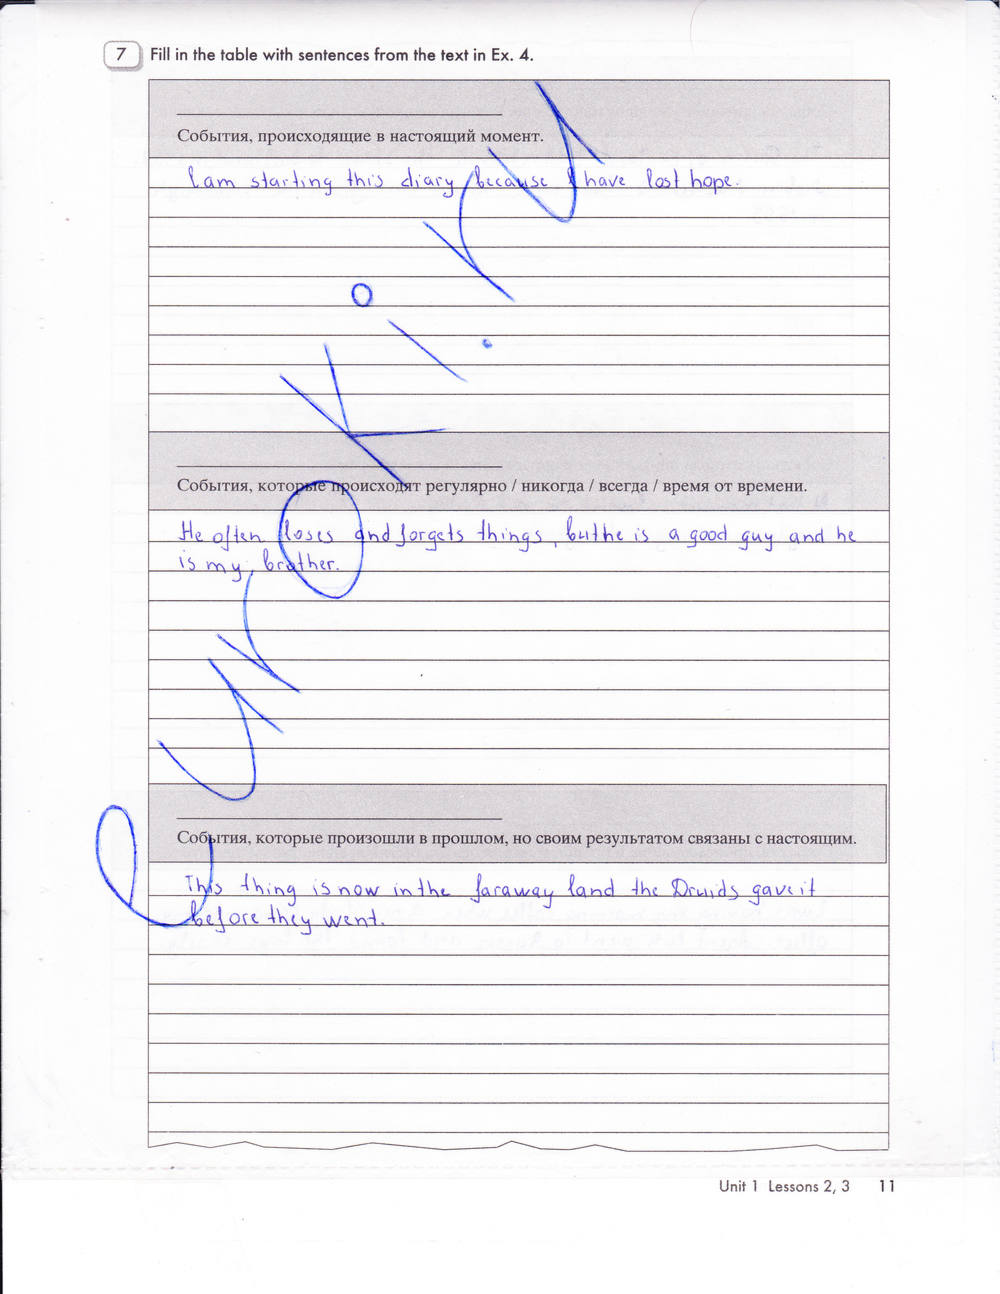 7 Fill in the table with sentences from the text in Ex. 4.
События, происходящие в настоящий момент.
I am starting this diary because I have lost hope.
События, которые происходят регулярно / никогда / всегда / время от времени.
He often loses and forgets things, but he is a good guy and he
is my brather.
События, которые произошли в прошлом, но своим результатом связаны с настоящим.
This thing is now in the faraway land the Druids gave it
before they went.
euroki.ru
Unit 1 Lessons 2, 3 11